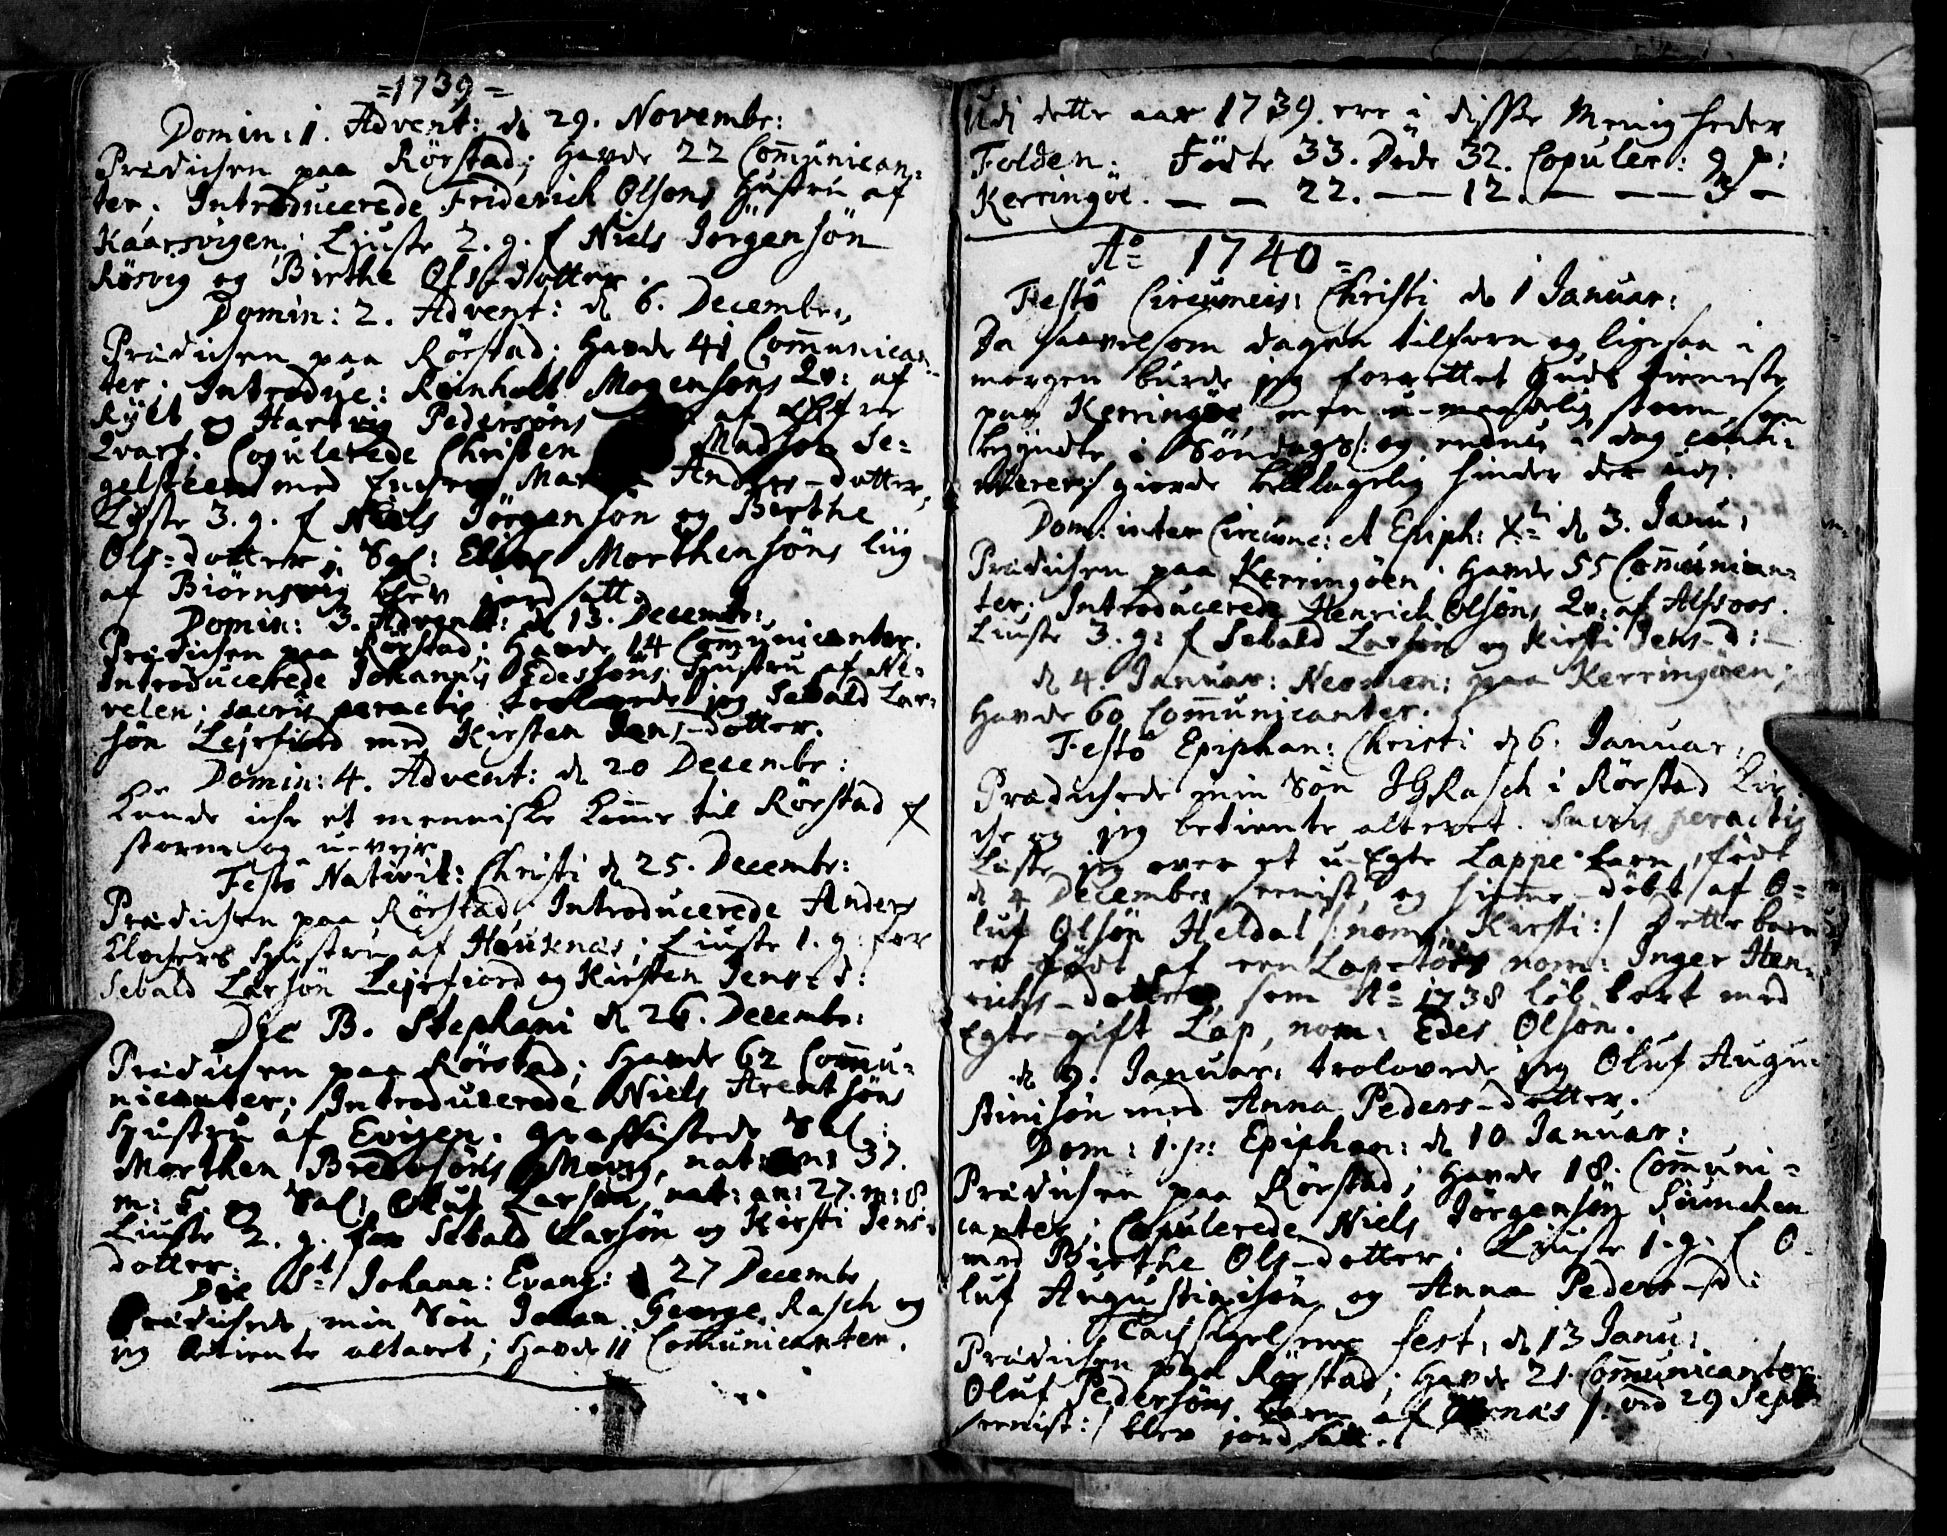 =1739=
Domin: 1. Advent: d. 29. Novembr:
Prædichen paa Rörstad; Havde 22 Com̄unican:
ter; Introducerede Friderich Olsöns Hustru af
Kaarsvigen; Liuste 2. g. f Niels Jörgensön
Rösvig og Birthe Olss-dotter.
Domin: 2. Advent: d. 6. Decembr.
Prædichen paa Rörstad; Havde 41 Com̄unican
ter; Introduc: Reinholt Mogensöns Qv: af
Kylt og Hartvig Pedersöns af
Qvarf. Copulerede Christen Madsön Se-
gelsteen med Anders-dotter,
Lyste 3. g. f Niels Jörgensön og Birthe
Ols-dotter; Sal: Elias Morthensöns liig
af Biörnsvig blev jordsatt.
Domin: 3. Advent: d. 13. Decembr:
Prædichen paa Rörstad; Havde 14 Com̄unicanter.
Introducerede Johannis Edessöns Hustru af Ne-
velen; sacris peractis trolovede jeg Sebald Lar-
sön Lejrfiord med Kirsten Jens-dotter.
Domin: 4. Advent: d. 20 Decembr:
Kunde iche et menniske kom̄e til Rörstad f
storm og u-vejr.
Festo Nativit: Christi d. 25. Decembr:
Prædichen paa Rörstad, Introducerede Anders
Klochers Hustru af Höuknæs; Liuste 1. g: for
Sebald Larsön Lejrfiord og Kirsten Jens-d:
Die B. Stephani d. 26. Decembr:
Prædichen paa Rörstad; Havde 62 Com̄u-
nicanter; Introducerede Niels Arentsöns
Hustru af Evigen. Grafkastede Sal:
Morthen Bredersöns Movig, nat: an: 37.
m: 5. og Sal: Oluf Larsön, nat: an: 27. m: 8
Liuste 2. g. for Sebald Larsön og Kirsti Jens-
dotter.
Die St Johann: Evang: d 27 Decembr
Prædichede min Sön Johan George Rasch og
jeg betiente alteret; Havde 11 Com̄unicanter.
Udi dette aar 1739. ere i disse Menigheder
Folden. Födte 33. Döde 32. Copuler: 9 p:
Kerringöe. — — 22. — — 12. — — — 3 —
Ao 1740=
Festo Circumcis: Christi d. 1 Januar:
Da saavelsom dagen tilforn og ligesaa i
morgen burde jeg forrettet Guds tieniste
paa Kerringöe, men u-maadelig storm, som
begyndte i Söndags/: og endnu i dag conti-
nuerer:/ giorde beklagelig hinder der udi.
Dom: inter Circumc: et Epiph: Xti d. 3. Janu:
Prædichen paa Kerringöen; Havde 55 Com̄unican-
ter; Introducerede Henrich Olsöns Qv: af Alsvos.
Liuste 3. g: f Sebald Larsön og Kirsti Jens-d:
d. 4. Januar: Neomen: paa Kerringöen;
Havde 60 Com̄unicanter.
Festo Epiphan: Christi d. 6. Januar:
Prædichede min Sön JGRasch i Rörstad Kir-
che og jeg betiente alteret. Sacris peractis
Læste jeg over et u-Egte Lappe-barn, födt
d. 4 Decembr. senist, og hieme-döbt af O-
luf Olsön Heldal /: nom: Kirsti:/ Dette barn
er födt af een Lap-töes nom: Inger Hen-
richs-dotter, som Ao 1738 löb bort med
Egte-gift Lap, nom: Edes Olsön.
d. 9. Januar: trolovede jeg Oluf Augu-
stinisön med Anna Peders-dotter.
Dom: 1. p: Epiphan: d. 10. Januar:
Prædichen paa Rörstad; Havde 18. Com̄uni-
canter; Copulerede Niels Jörgensön
med Birthe Ols-dotter. Liuste 1. g. f O-
luf Augustinisön og Anna Peders-d:
Tachsigelsens fest, d. 13 Janu:
Prædichen paa Rörstad; Havde 21. Com̄unicanter
Oluf Pedersöns barn af /: död 29 Sept
senist:/ blev jordsatt.